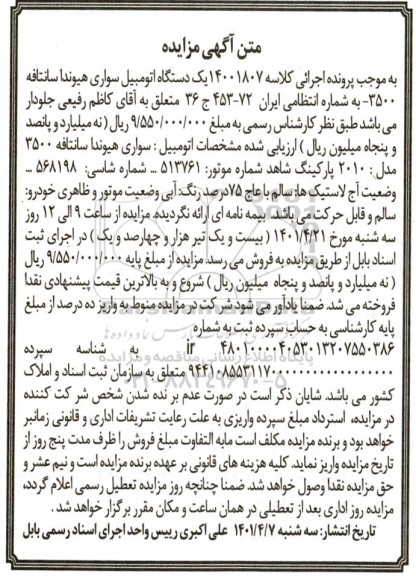 متن آگهی مزایده
به موجب پرونده اجرائی کلاسه ۱۴۰۰۱۸۰۷ یک دستگاه اتومبیل سواری هیوندا سانتافه
۳۵۰۰- به شماره انتظامی ایران ۷۲-۴۵۳ ج ۳۶ متعلق به آقای کاظم رفیعی جلودار
می باشد طبق نظر کارشناس رسمی به مبلغ ۹/۵۵۰/۰۰۰/۰۰۰ ریال (نه میلیارد و پانصد
و پنجاه میلیون ریال) ارزیابی شده مشخصات اتومبیل : سواری هیوندا سانتافه ۳۵۰۰
مدل : ۲۰۱۰ پارکینگ شاهد شماره موتور: ۵۱۳۷۶۱ ... شماره شاسی: ۵۶۸۱۹۸ ...
وضعیت آج لاستیک ها: سالم با عاج ۷۵درصد رنگ: آبی وضعیت موتور و ظاهری خودرو:
سالم و قابل حرکت می باشد. بیمه نامه ای ارائه نگردیده. مزایده از ساعت ۹ الی ۱۲ روز
سه شنبه مورخ ۱۴۰۱/۴/۲۱ ( بیست و یک تیر هزار و چهارصد و یک ) در اجرای ثبت
اسناد بابل از طریق مزایده به فروش می رسد. مزایده از مبلغ پایه ۹/۵۵۰/۰۰۰/۰۰۰ ریال
( نه میلیارد و پانصد و پنجاه میلیون ریال ) شروع و به بالاترین قیمت پیشنهادی نقدا
فروخته می شد. ضمنا یادآور می شود شرکت در مزایده منوط به واریز ده درصد از مبلغ
پایه کارشناسی به حساب سپرده ثبت به شماره
IR ۴۸۰۱۰۰۰۰۴۰۵۳۰۱۳۲۰۷۵۵۰۳۸۶ به شناسه سپرده
۹۴۴۱۰۸۵۵۳۱۱۷۰۰۰۰۰۰۰۰۰۰۰۰۰۰۰۰۰۰ متعلق به سازمان ثبت اسناد و املاک
کشور می باشد. شایان ذکر است در صورت عدم برنده شدن شخص شرکت کننده
در مزایده، استرداد مبلغ سپرده واریزی به علت رعایت تشریفات اداری و قانونی زمانبر
خواهد بود و برنده مزایده مکلف است مابه التفاوت مبلغ فروش را ظرف مدت پنج روز از
تاریخ مزایده واریز نماید. کلیه هزینه های قانونی بر عهده برنده مزایده است و نیم عشر و
حق مزایده نقدا وصول خواهد شد. ضمنا چنانچه روز مزایده تعطیل رسمی اعلام گردد،
مزایده روز اداری بعد از تعطیلی در همان ساعت و مکان مقرر برگزار خواهد شد.
تاریخ انتشار: سه شنبه ۱۴۰۱/۴/۷ علی اکبری رییس واحد اجرای اسناد رسمی بابل
پایگاه اطلاع رسانی مناقصه و مزایده